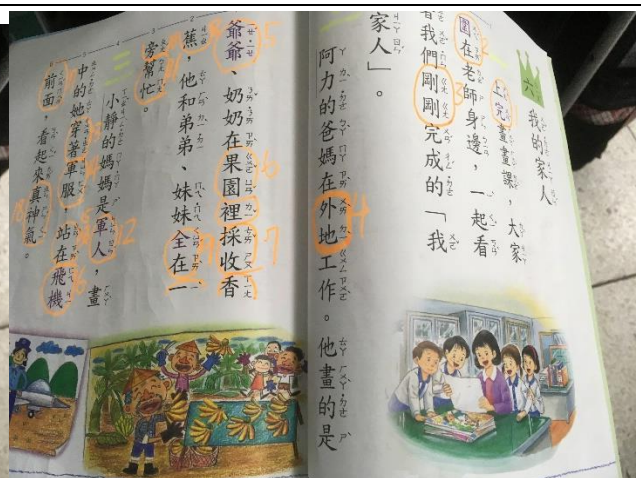 六
我的家人
上完畫畫課，大家
圍在老師身邊，一起看
著我們剛剛完成的「我
家人」。
阿力的爸媽在外地工作。他畫的是
爺爺、奶奶在果園裡採收香
蕉，他和弟弟、妹妹全在一
旁幫忙。
小靜的媽媽是軍人，畫
中的她穿著軍服，站在飛機
前面，看起來真神氣。